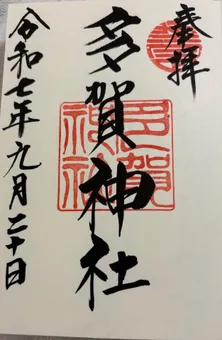 奉拝
多賀神社
多賀神社
令和七年九月二十日